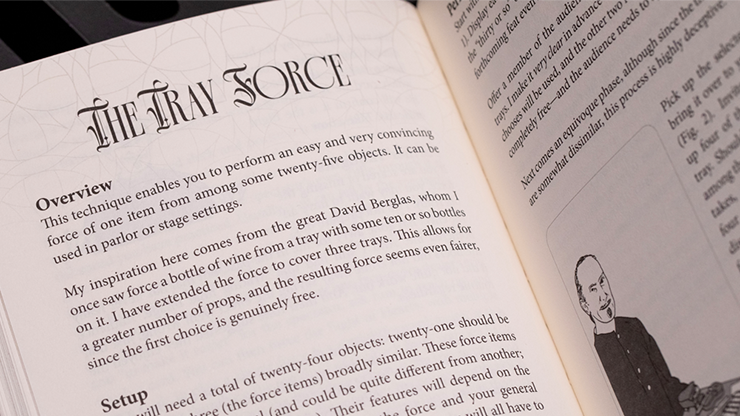 THE TRAY FORCE
Overview
This technique enables you to perform an easy and very convincing
force of one item from among some twenty-five objects. It can be
used in parlor or stage settings.
My inspiration here comes from the great David Berglas, whom I
once saw force a bottle of wine from a tray with some ten or so bottles
on it. I have extended the force to cover three trays. This allows for
a greater number of props, and the resulting force seems even fairer,
since the first choice is genuinely free.
Setup
will need a total of twenty-four objects: twenty-one should be
(the force items) broadly similar. These force items
(and could be quite different from another;
Their features will depend on the
the force and your general
will all have to
Start with
1). Display ea
the “thirty or so”
forthcoming feat even
Offer a member of the audien
trays. I make it very dear in advance
chooses will be used, and the other two
completely free—and the audience needs to
Next comes an equivoque phase, although since the t
are somewhat dissimilar, this process is highly deceptive.
Pick up the selecte
bring it over to y
(Fig. 2). Invit
up four of th
tray. Should
among th
takes,
four